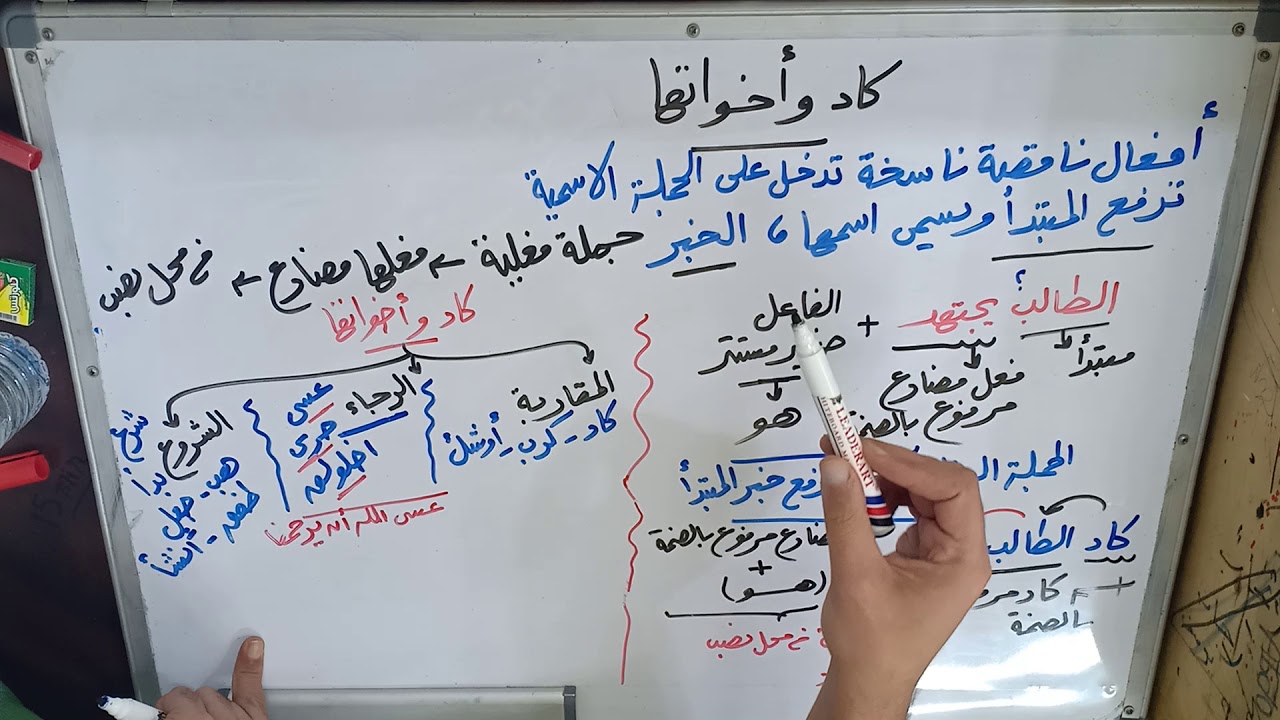 كاد وأخواتها
أفعال ناقصة ناسخة تدخل على الجملة الاسمية
ترفع المبتدأ ويسمى اسمها ، الخبر جملة فعلية ← فعلها مضارع ← في محل نصب
الطالب يجتهد + الفاعل
مبتدأ
فعل مضارع
مرفوع بالضمة
ضمير مستتر
هو
الجملة
رفع خبر المبتدأ
كاد الطالب
كاد
بالضمة
مضارع مرفوع بالضمة
+
(هو)
في محل نصب
كاد وأخواتها
المقاربة
كاد - كرب - أوشك
الرجاء
عسى
حرى
اخلولق
عسى الله أن يرحمنا
الشروع
شرع
بدأ
هب - جعل
طفق - أنشأ
LEADERART